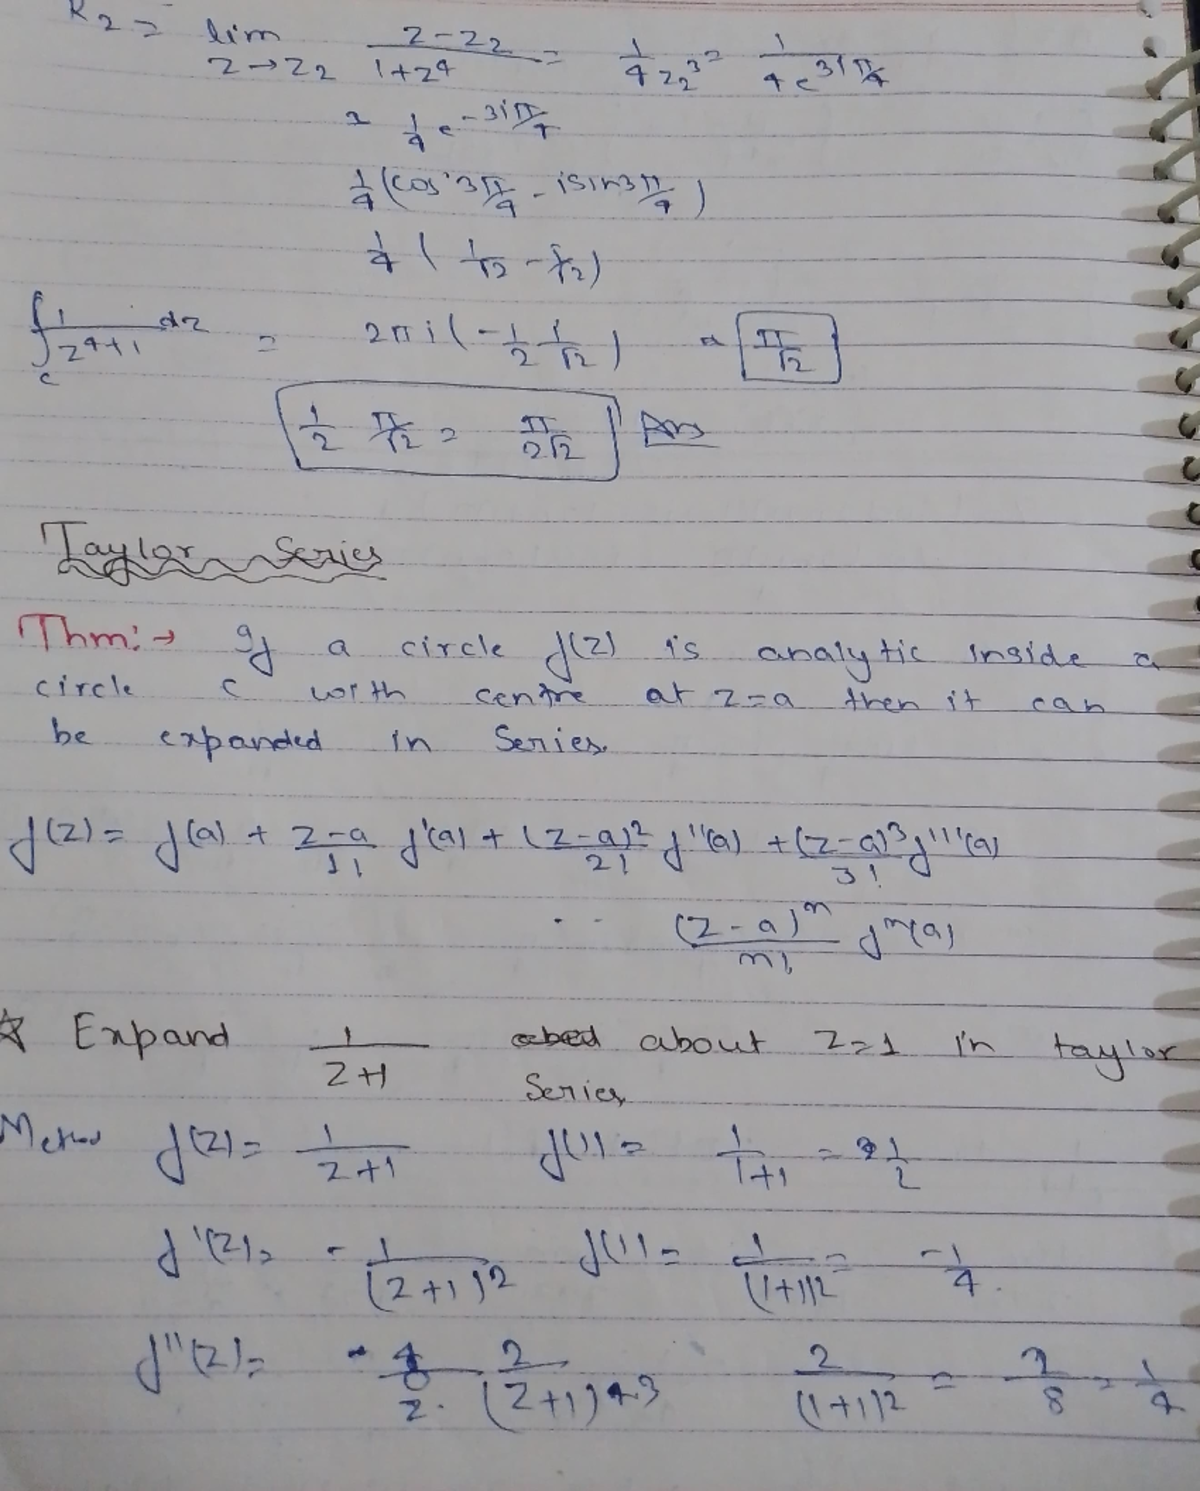 R2 = lim z→z2 z-z2/1+z^4 = 1/4z2^3 = 1/4e^3iπ/4
= 1/4 e^-3iπ/4
1/4 (cos 3π/4 - isin3π/4)
1/4 ( 1/√2 - i/√2)
∫c 1/z^4+1 dz = 2πi(-1/2 i/√2) = π/√2
1/2 π/√2 = π/2√2 Ans
Taylor Series
Thm:→ If a circle f(z) is analytic inside a
circle c with centre at z=a then it can
be expanded in Series.
f(z) = f(a) + z-a/1! f'(a) + (z-a)^2/2! f''(a) + (z-a)^3/3! f'''(a)
.. (z-a)^n/n! f^n(a)
☆ Expand 1/z+1 about z=1 in taylor
Series
f(z) = 1/z+1 f(1) = 1/1+1 = 1/2
f'(z) = -1/(z+1)^2 f(1) = 1/(1+1)2 = -1/4.
f''(z) = 2/(z+1)3 2/(1+1)2 = 2/8 = 1/4